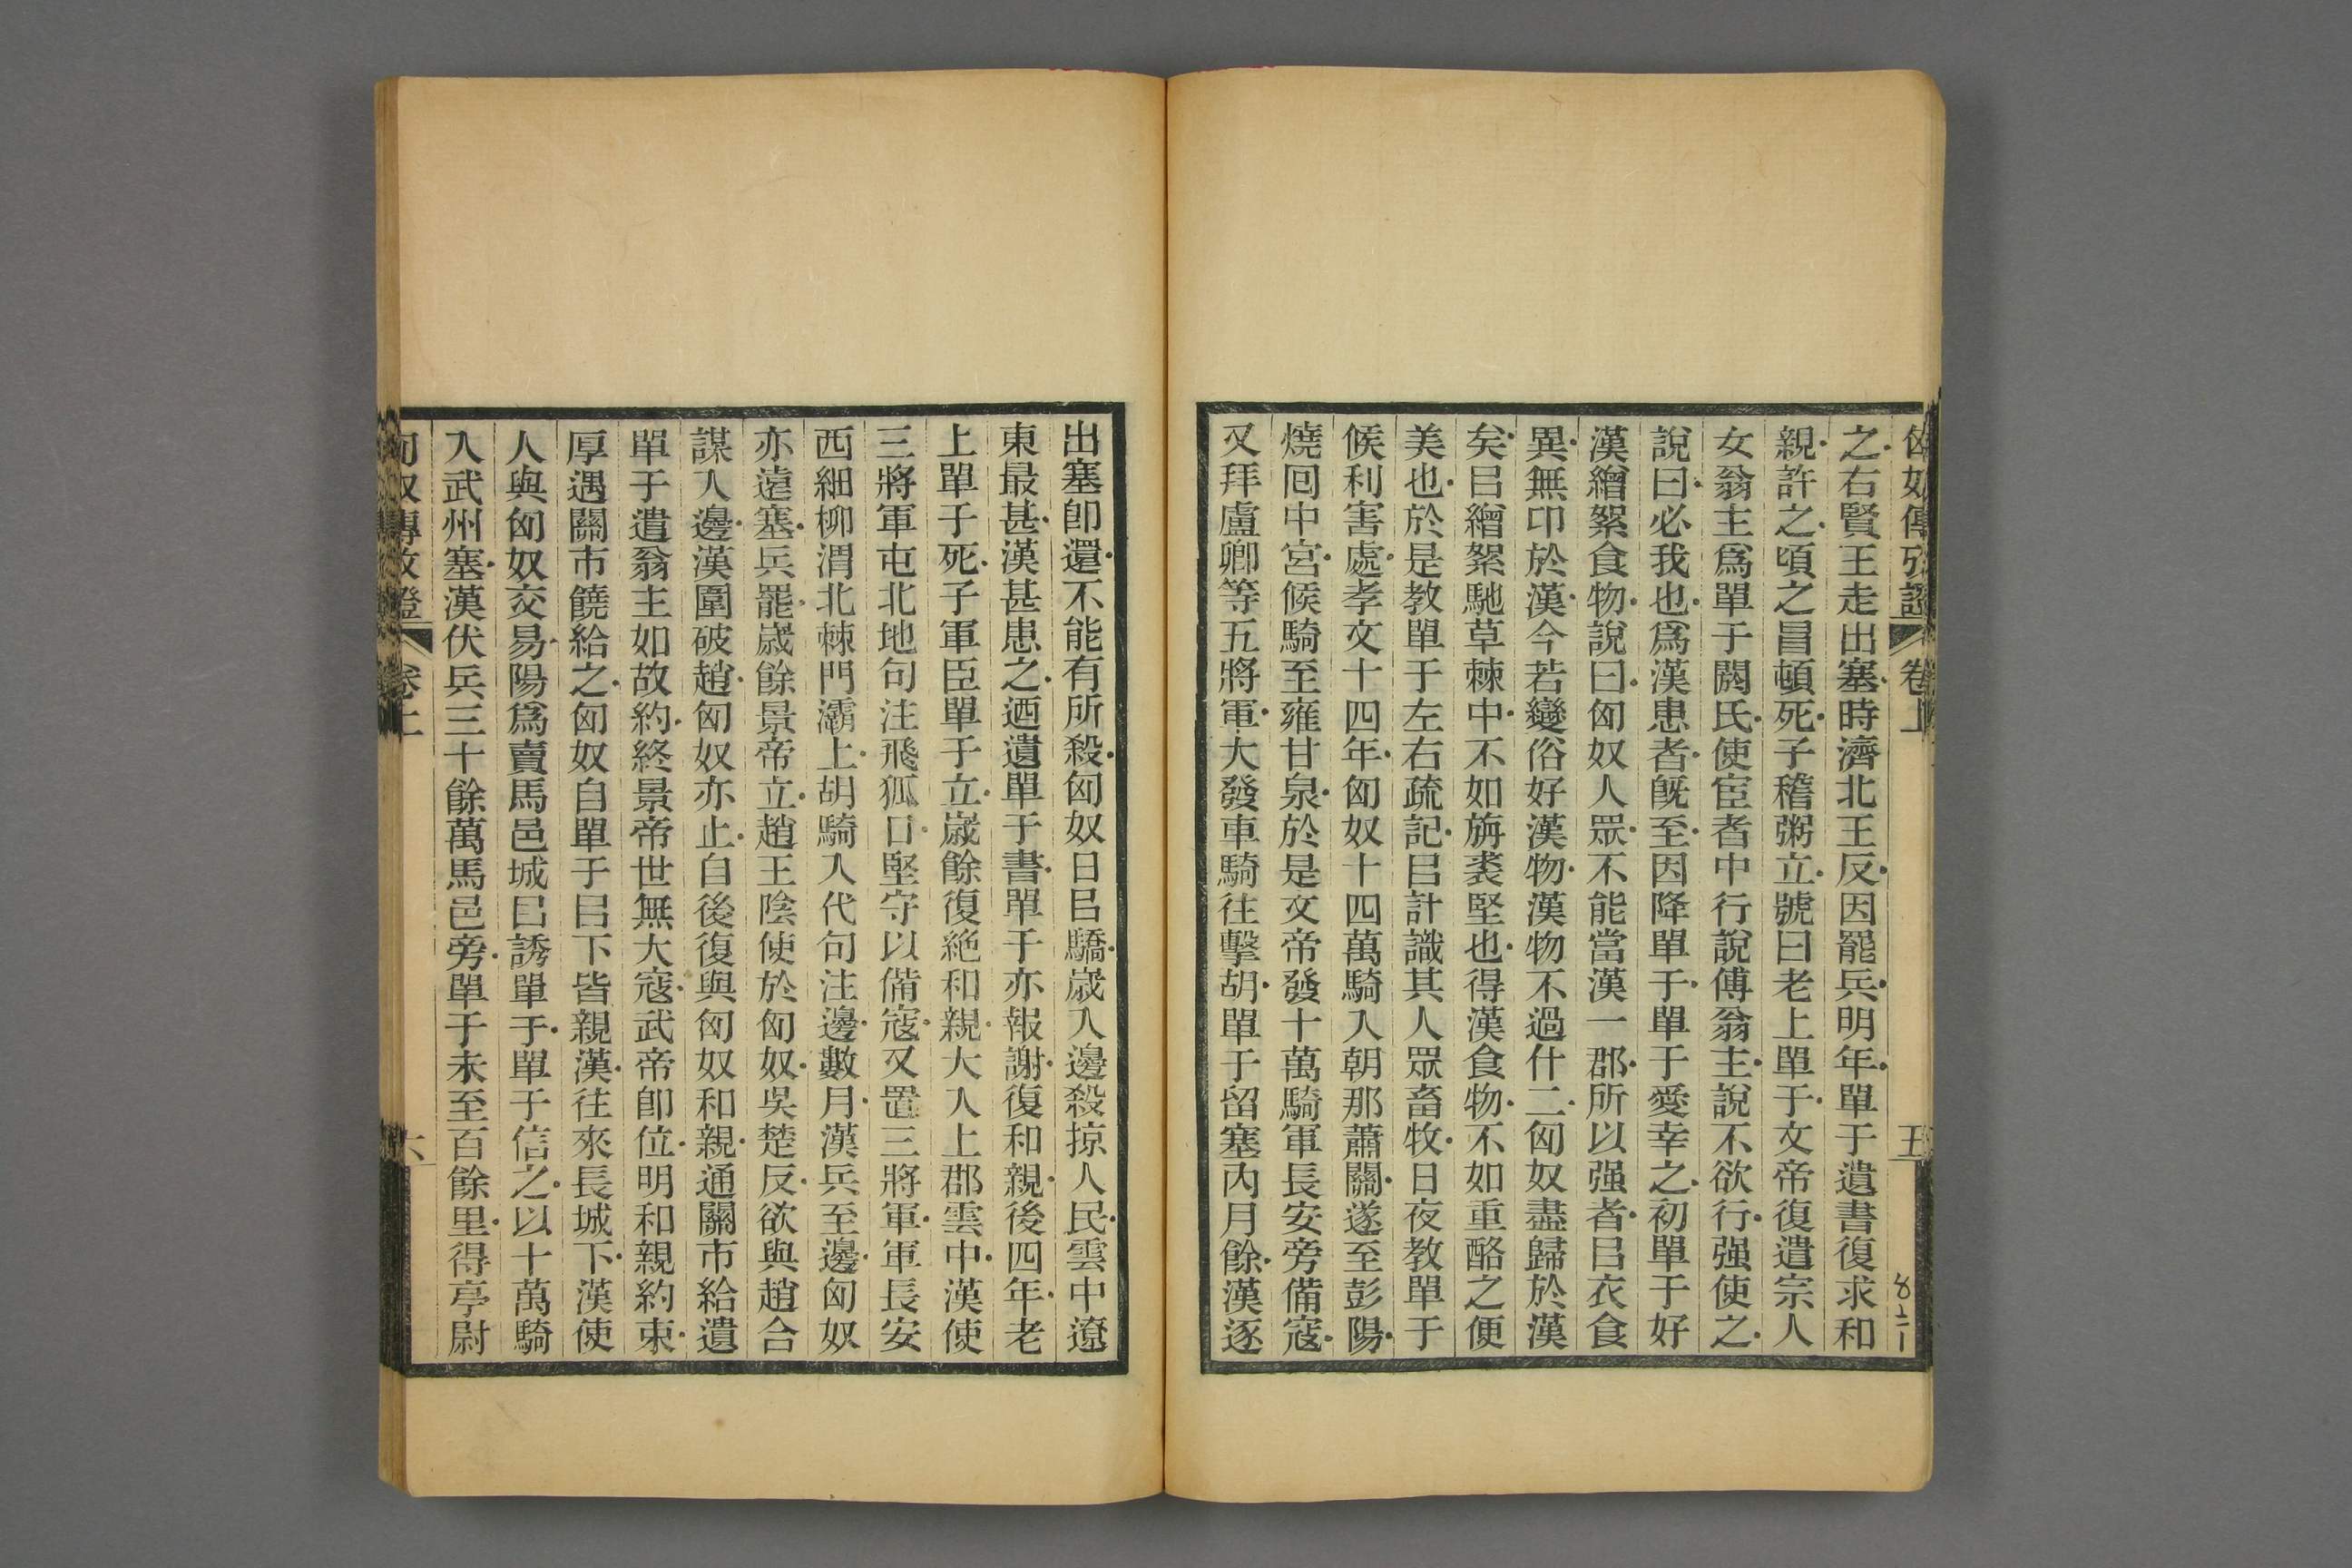 匈奴傳攷證 卷上 五
之右賢王走出塞時濟北王反因罷兵明年單于遺書復求和
親許之頃之冒頓死子稽粥立號曰老上單于文帝復遣宗人
女翁主爲單于閼氏使宦者中行說傅翁主說不欲行强使之
說曰必我也爲漢患者旣至因降單于單于愛幸之初單于好
漢繒絮食物說曰匈奴人眾不能當漢一郡所以强者㠯衣食
異無卬於漢今若變俗好漢物漢物不過什二匈奴盡歸於漢
矣㠯繒絮馳草棘中不如旃裘堅也得漢食物不如重酪之便
美也於是教單于左右疏記㠯計識其人眾畜牧日夜教單于
候利害處孝文十四年匈奴十四萬騎入朝那蕭關遂至彭陽
燒回中宮候騎至雍甘泉於是文帝發十萬騎軍長安旁備寇
又拜盧卿等五將軍大發車騎往擊胡單于留塞內月餘漢逐
出塞卽還不能有所殺匈奴日㠯驕歲入邊殺掠人民雲中遼
東最甚漢甚患之迺遺單于書單于亦報謝復和親後四年老
上單于死子軍臣單于立歲餘復絕和親大入上郡雲中漢使
三將軍屯北地句注飛狐口堅守以備寇又置三將軍軍長安
西細柳渭北棘門灞上胡騎入代句注邊數月漢兵至邊匈奴
亦遠塞兵罷歲餘景帝立趙王陰使於匈奴吳楚反欲與趙合
謀入邊漢圍破趙匈奴亦止自後復與匈奴和親通關市給遺
單于遣翁主如故約終景帝世無大寇武帝卽位明和親約束
厚遇關市饒給之匈奴自單于㠯下皆親漢往來長城下漢使
人與匈奴交易陽爲賣馬邑城㠯誘單于單于信之以十萬騎
入武州塞漢伏兵三十餘萬馬邑旁單于未至百餘里得亭尉
匈奴傳攷證 卷上 六